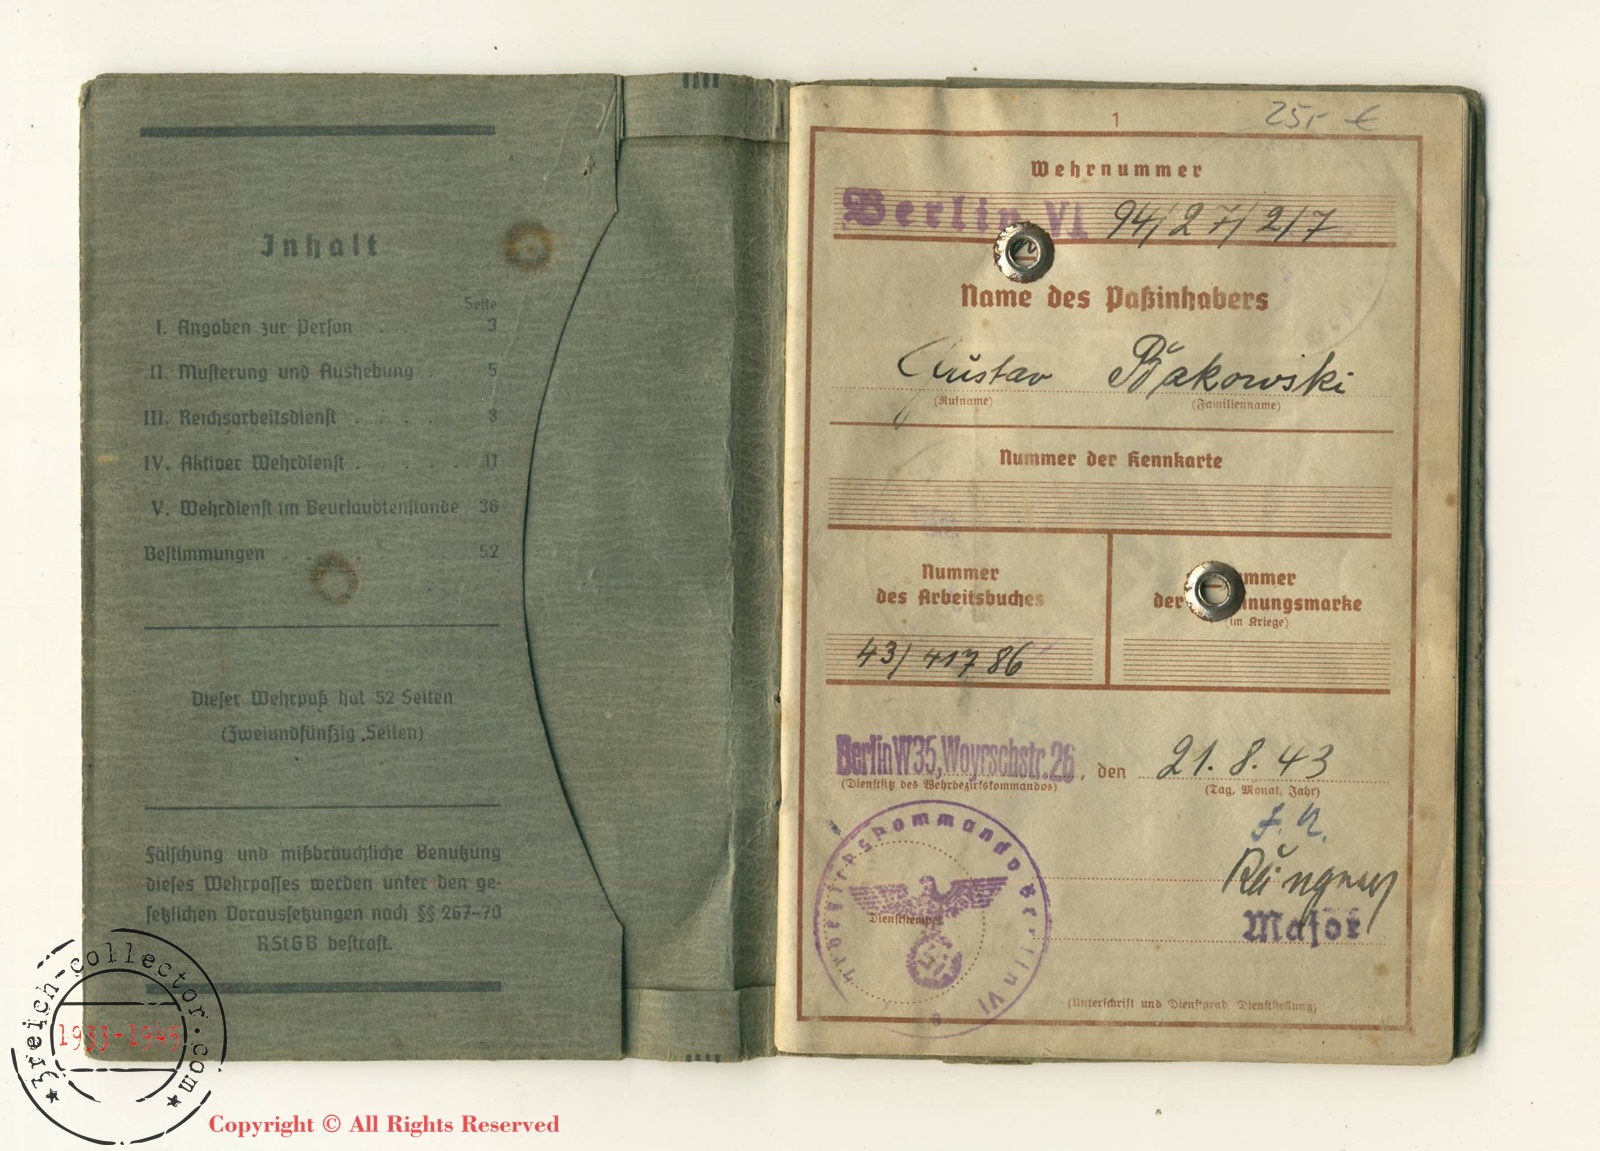 Inhalt
Seite
I. Angaben zur Person . . . 3
II. Musterung und Aushebung . 5
III. Reichsarbeitsdienst . . . . 8
IV. Aktiver Wehrdienst . . . . . 11
V. Wehrdienst im Beurlaubtenstande 36
Bestimmungen . . . . . 52
Dieser Wehrpaß hat 52 Seiten
(Zweiundfünfzig Seiten)
Fälschung und mißbräuchliche Benutzung
dieses Wehrpasses werden unter den ge-
setzlichen Voraussetzungen nach §§ 267-70
RStGB bestraft.
3reich-collector.com
1933-1945
Copyright © All Rights Reserved
1
25,- €
Wehrnummer
Berlin VI 94/27/2/7
Name des Paßinhabers
Gustav
(Rufname) (Familienname)
Nummer der Kennkarte
Nummer
des Arbeitsbuches
43/41786
der
(im Kriege)
Berlin W35, Woyrschstr. 26, den 21. 8. 43
(Dienstsitz des Wehrbezirkskommandos) (Tag, Monat, Jahr)
Major
Dienststempel
Wehrbezirkskommando Berlin VI
(Unterschrift und Dienstgrad, Dienststellung)